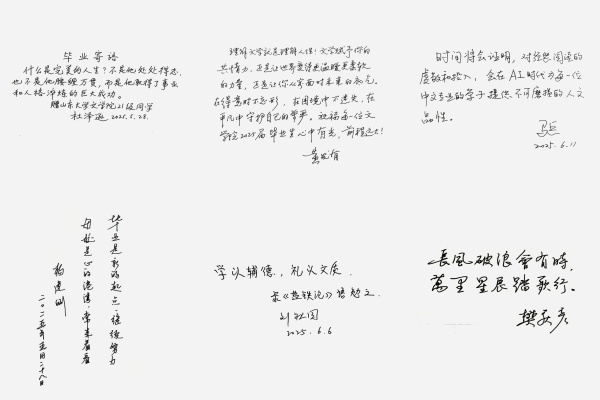 毕业寄语
什么是完美的人生？不是他处处得志，
也不是他腰缠万贯，而是他取得了事业
和人格淬炼的巨大成功。
赠山东大学文学院21级同学
杜泽逊 2025.5.28.
理解文学就是理解人性！文学赋予你的
共情力，正是让世界变得更温暖更柔软
的力量，正是让你从容面对未来的初心。
在得意时不忘形，在困境中不迷失，在
平凡中守护自己的梦想。祝福每一位文
学院2025届毕业生心中有光，前程远大！
黄发有
时间将会证明，对经典阅读的
虔敬和投入，会在AI时代为每一位
中文专业的学子提供不可磨灭的人文
品性。
马兵
2025.6.11
毕业是新的起点，继续努力
母校是心的港湾，常来看看
杨建刚
二〇二五年五月二十八日
学以辅德，礼以文质。
录《盐铁论》语勉之。
刘祖国
2025.6.6
长风破浪会有时，
万里星辰踏歌行。
樊庆彦